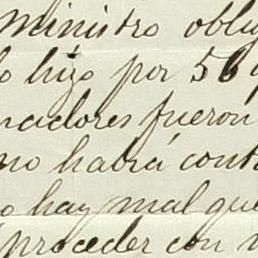 ministro oblig
lo hizo por 56 q
nadores fueron
no habrá cont
o hay mal que
proceder con